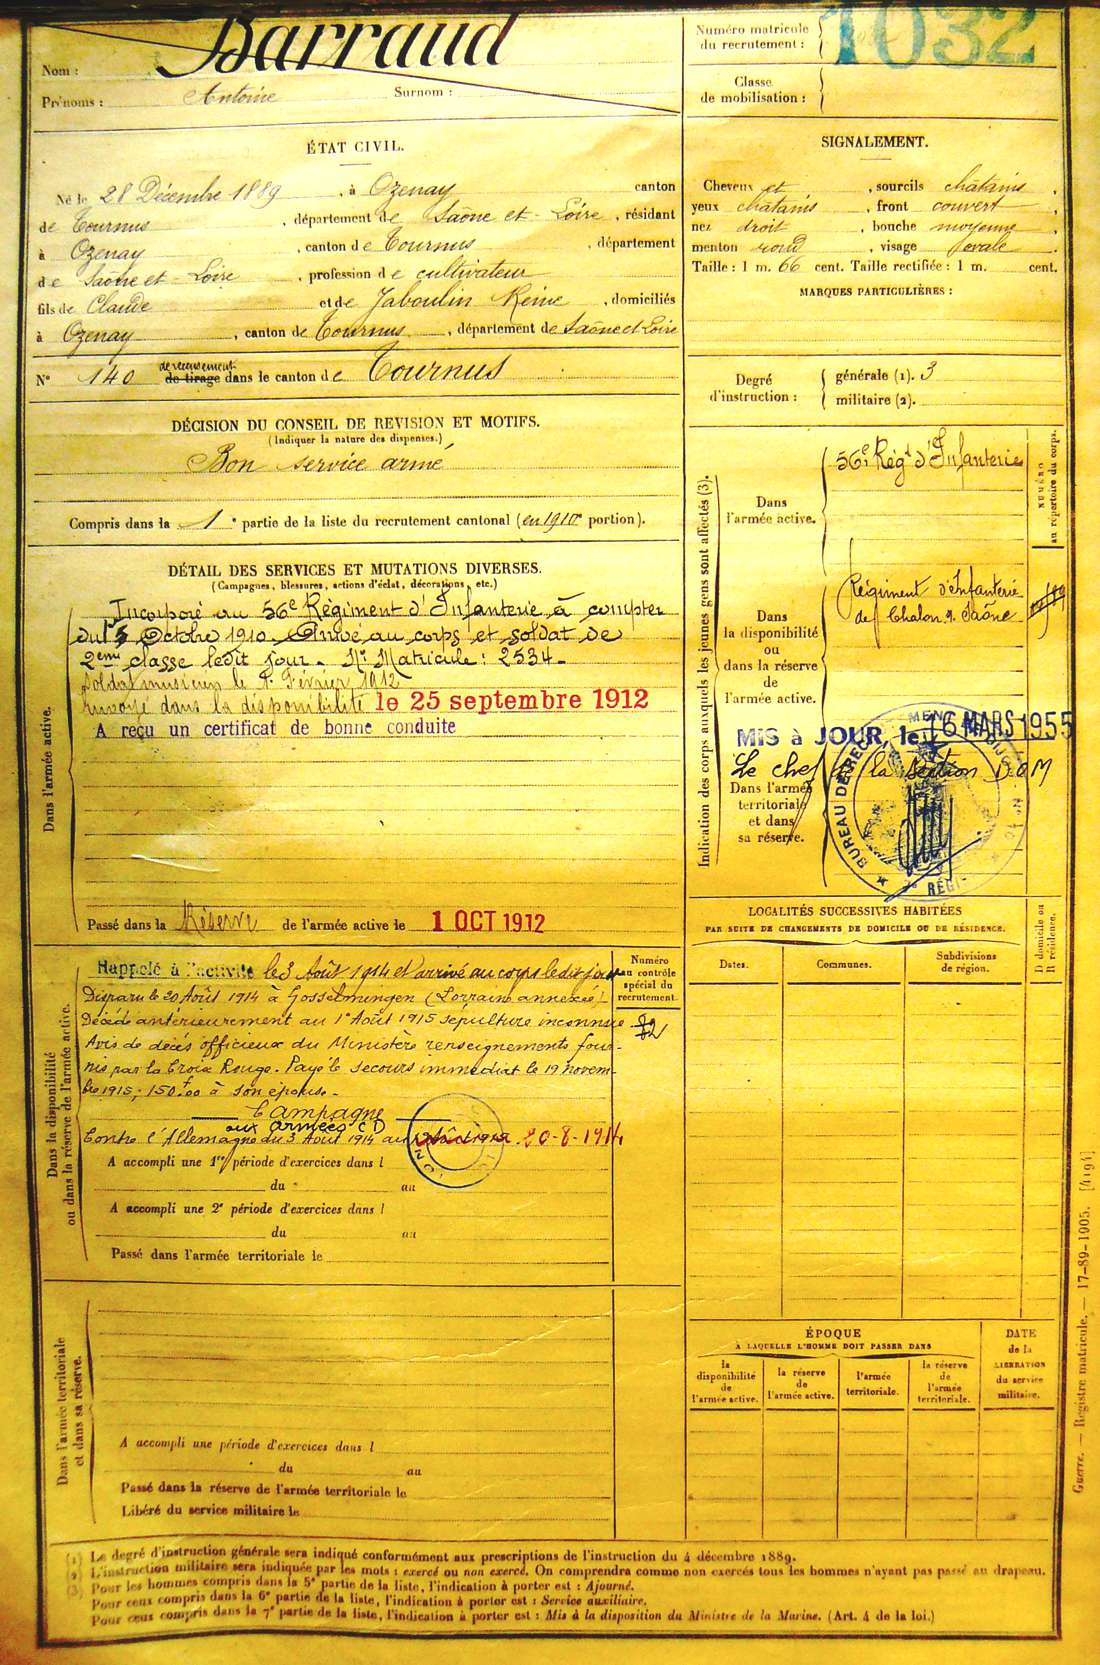 Nom : Barraud
Prénoms : Antoine Surnom :
Numéro matricule du recrutement : 1032
Classe de mobilisation :
ÉTAT CIVIL.
Né le 28 Décembre 1889, à Ozenay canton
de Tournus, département de Saône et-Loire, résidant
à Ozenay, canton de Tournus, département
de Saône et-Loire, profession de cultivateur
fils de Claude et de Jaboulin Reine, domiciliés
à Ozenay, canton de Tournus, département de Saône et Loire
N° 140 de recensement de tirage dans le canton de Tournus
DÉCISION DU CONSEIL DE REVISION ET MOTIFS.
(Indiquer la nature des dispenses.)
Bon service armé
Compris dans la 1e partie de la liste du recrutement cantonal (en 1910 portion).
SIGNALEMENT.
Cheveux et, sourcils châtains,
yeux châtains, front couvert,
nez droit, bouche moyenne,
menton rond, visage ovale.
Taille : 1 m. 66 cent. Taille rectifiée : 1 m. cent.
MARQUES PARTICULIÈRES :
Degré d'instruction :
générale (1). 3
militaire (2).
DÉTAIL DES SERVICES ET MUTATIONS DIVERSES.
(Campagnes, blessures, actions d'éclat, décorations, etc.)
Dans l'armée active.
Incorporé au 56e Régiment d'Infanterie à compter
du 5 Octobre 1910. Arrivé au corps et soldat de
2ème classe ledit jour. No Matricule : 2534.
Soldat musicien le 1r Février 1912
Envoyé dans la disponibilité le 25 septembre 1912
A reçu un certificat de bonne conduite
Passé dans la Réserve de l'armée active le 1 OCT 1912
Dans la disponibilité
ou dans la réserve de l'armée active.
Numéro
au contrôle
spécial du
recrutement.
Rappelé à l'activité le 3 Août 1914 et arrivé au corps ledit jour
Disparu le 20 Août 1914 à Gosselmingen (Lorraine annexée)
Décédé antérieurement au 1er Août 1915 sépulture inconnue
Avis de décès officieux du Ministère renseignements four-
nis par la Croix Rouge. Payé le secours immédiat le 19 novem-
bre 1915, 150f00 à son épouse.
Campagne
aux armées CD
Contre l'Allemagne du 3 Août 1914 au 20-8-1914
A accompli une 1re période d'exercices dans l
du au
A accompli une 2e période d'exercices dans l
du au
Passé dans l'armée territoriale le
Dans l'armée territoriale
et dans sa réserve.
A accompli une période d'exercices dans l
du au
Passé dans la réserve de l'armée territoriale le
Libéré du service militaire le
Indication des corps auxquels les jeunes gens sont affectés (3).
NUMÉRO
au répertoire du corps.
Dans
l'armée active.
56e Régt d'Infanterie
Dans
la disponibilité
ou
dans la réserve
de
l'armée active.
Régiment d'Infanterie
de Chalon s. Saône
MIS à JOUR, le 16 MARS 1955
Le chef la section DOM
Dans l'armée
territoriale
et dans
sa réserve.
BUREAU DE RECRUTEMENT
RÉGI
LOCALITÉS SUCCESSIVES HABITÉES
PAR SUITE DE CHANGEMENTS DE DOMICILE OU DE RÉSIDENCE.
Dates.
Communes.
Subdivisions
de région.
D domicile ou
R résidence.
ÉPOQUE
A LAQUELLE L'HOMME DOIT PASSER DANS
la
disponibilité
de
l'armée active.
la réserve
de
l'armée active.
l'armée
territoriale.
la réserve
de
l'armée
territoriale.
DATE
de la
LIBÉRATION
du service
militaire.
Guerre. — Registre matricule. — 17-89-1905. [4194]
(1) Le degré d'instruction générale sera indiqué conformément aux prescriptions de l'instruction du 4 décembre 1889.
(2) L'instruction militaire sera indiquée par les mots : exercé ou non exercé. On comprendra comme non exercés tous les hommes n'ayant pas passé au drapeau.
(3) Pour les hommes compris dans la 5e partie de la liste, l'indication à porter est : Ajourné.
Pour ceux compris dans la 6e partie de la liste, l'indication à porter est : Service auxiliaire.
Pour ceux compris dans la 7e partie de la liste, l'indication à porter est : Mis à la disposition du Ministre de la Marine. (Art. 4 de la loi.)